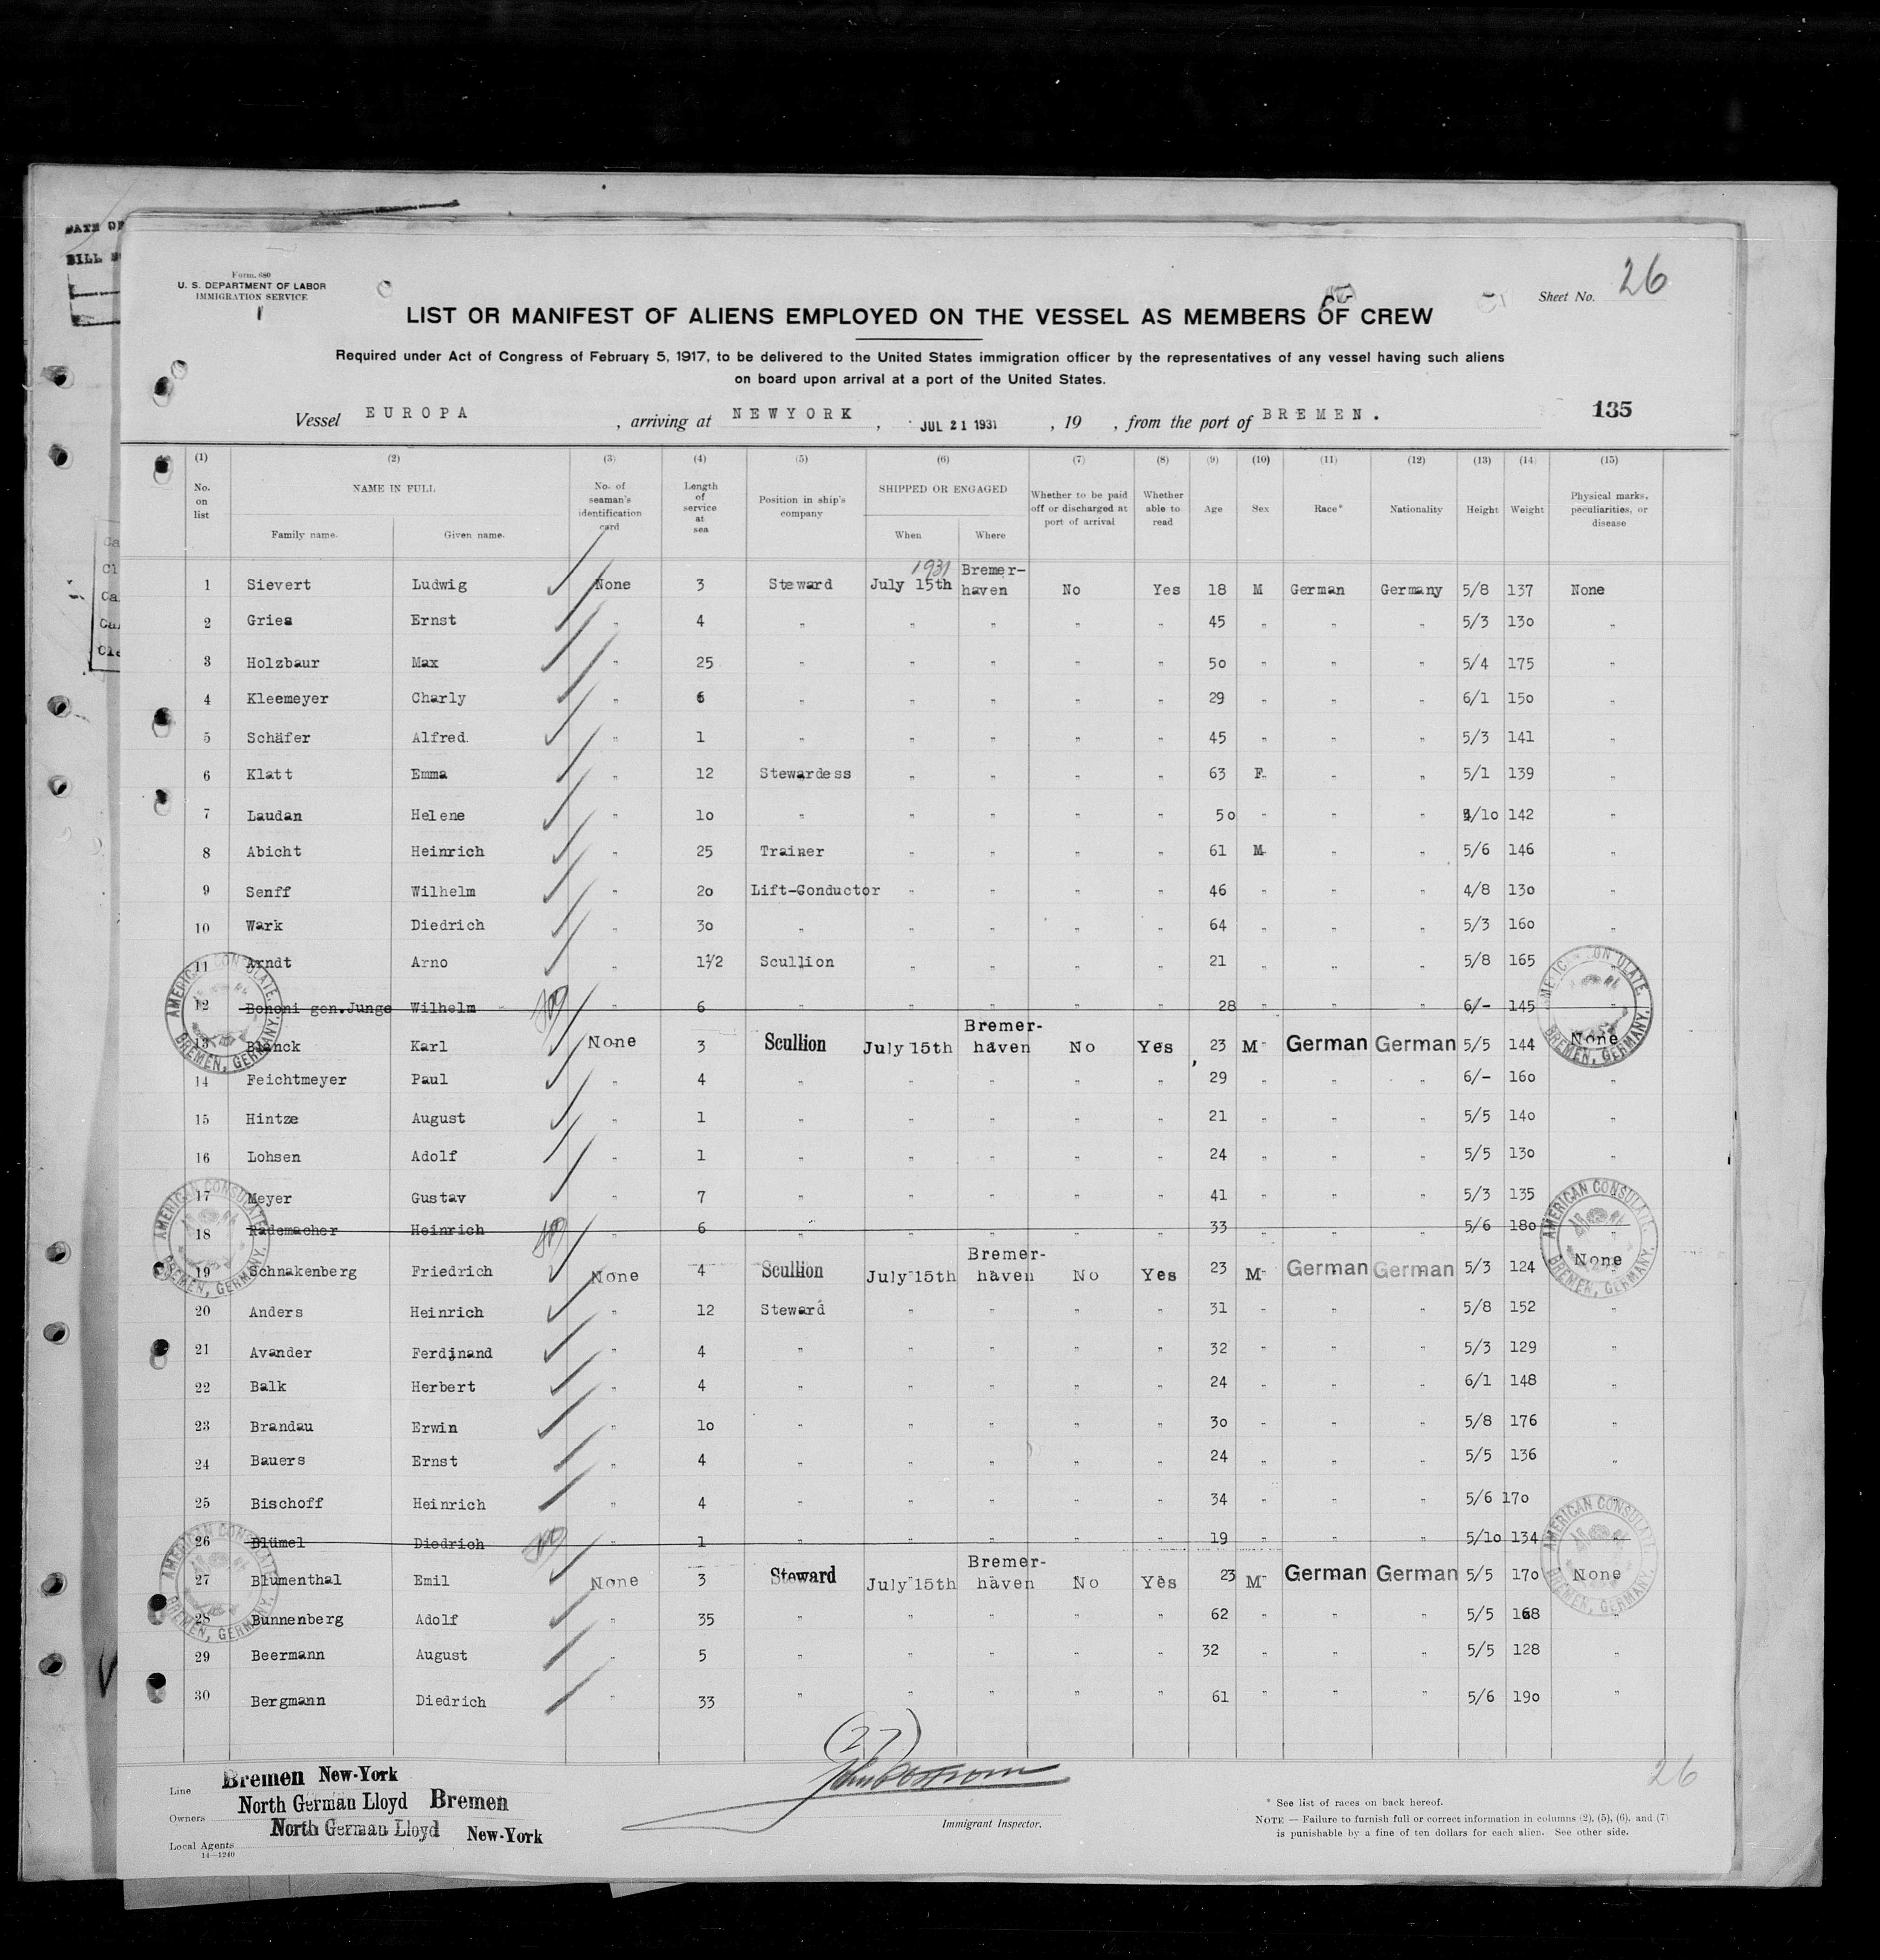 DATE OF
BILL
Form. 680
U. S. DEPARTMENT OF LABOR
IMMIGRATION SERVICE
Sheet No. 26
LIST OR MANIFEST OF ALIENS EMPLOYED ON THE VESSEL AS MEMBERS OF CREW
Required under Act of Congress of February 5, 1917, to be delivered to the United States immigration officer by the representatives of any vessel having such aliens
on board upon arrival at a port of the United States.
135
Vessel EUROPA , arriving at NEWYORK , JUL 21 1931 , 19 , from the port of BREMEN.
(1) (2) (3) (4) (5) (6) (7) (8) (9) (10) (11) (12) (13) (14) (15)
No. on list NAME IN FULL Family name. Given name. No. of seaman's identification card Length of service at sea Position in ship's company SHIPPED OR ENGAGED When Where Whether to be paid off or discharged at port of arrival Whether able to read Age Sex Race* Nationality Height Weight Physical marks, peculiarities, or disease
1931 Bremer-
1 Sievert Ludwig None 3 Steward July 15th haven No Yes 18 M German Germany 5/8 137 None
2 Gries Ernst " 4 " " " " " 45 " " " 5/3 130 "
3 Holzbaur Max " 25 " " " " " 50 " " " 5/4 175 "
4 Kleemeyer Charly " 6 " " " " " 29 " " " 6/1 150 "
5 Schäfer Alfred. " 1 " " " " " 45 " " " 5/3 141 "
6 Klatt Emma " 12 Stewardess " " " " 63 F " " 5/1 139 "
7 Laudan Helene " 10 " " " " " 50 " " " /10 142 "
8 Abicht Heinrich " 25 Trainer " " " " 61 M " " 5/6 146 "
9 Senff Wilhelm " 20 Lift-Conductor " " " " 46 " " " 4/8 130 "
10 Wark Diedrich " 30 " " " " " 64 " " " 5/3 160 "
11 Arndt Arno " 1 1/2 Scullion " " " " 21 " " " 5/8 165 "
12 Bononi gen.Junge Wilhelm " 6 " " " " " 28 " " " 6/- 145 "
Bremer-
13 Blanck Karl None 3 Scullion July 15th haven No Yes 23 M German German 5/5 144 None
14 Feichtmeyer Paul " 4 " " " " " 29 " " " 6/- 160 "
15 Hintze August " 1 " " " " " 21 " " " 5/5 140 "
16 Lohsen Adolf " 1 " " " " " 24 " " " 5/5 130 "
17 Meyer Gustav " 7 " " " " " 41 " " " 5/3 135 "
18 Rademacher Heinrich " 6 " " " " " 33 " " " 5/6 180 "
Bremer-
19 Schnakenberg Friedrich None 4 Scullion July 15th haven No Yes 23 M German German 5/3 124 None
20 Anders Heinrich " 12 Steward " " " " 31 " " " 5/8 152 "
21 Avander Ferdinand " 4 " " " " " 32 " " " 5/3 129 "
22 Balk Herbert " 4 " " " " " 24 " " " 6/1 148 "
23 Brandau Erwin " 10 " " " " " 30 " " " 5/8 176 "
24 Bauers Ernst " 4 " " " " " 24 " " " 5/5 136 "
25 Bischoff Heinrich " 4 " " " " " 34 " " " 5/6 170 "
26 Blümel Diedrich " 1 " " " " " 19 " " " 5/10 134 "
Bremer-
27 Blumenthal Emil None 3 Steward July 15th haven No Yes 23 M German German 5/5 170 None
28 Bunnenberg Adolf " 35 " " " " " 62 " " " 5/5 168 "
29 Beermann August " 5 " " " " " 32 " " " 5/5 128 "
30 Bergmann Diedrich " 33 " " " " " 61 " " " 5/6 190 "
AMERICAN CONSULATE. BREMEN, GERMANY.
AMERICAN CONSULATE. BREMEN, GERMANY.
AMERICAN CONSULATE. BREMEN, GERMANY.
AMERICAN CONSULATE. BREMEN, GERMANY.
AMERICAN CONSULATE. BREMEN, GERMANY.
AMERICAN CONSULATE. BREMEN, GERMANY.
(27)
26
Line Bremen New-York
Owners North German Lloyd Bremen
Local Agents North German Lloyd New-York
14—1240
Immigrant Inspector.
* See list of races on back hereof.
NOTE — Failure to furnish full or correct information in columns (2), (5), (6), and (7)
is punishable by a fine of ten dollars for each alien. See other side.